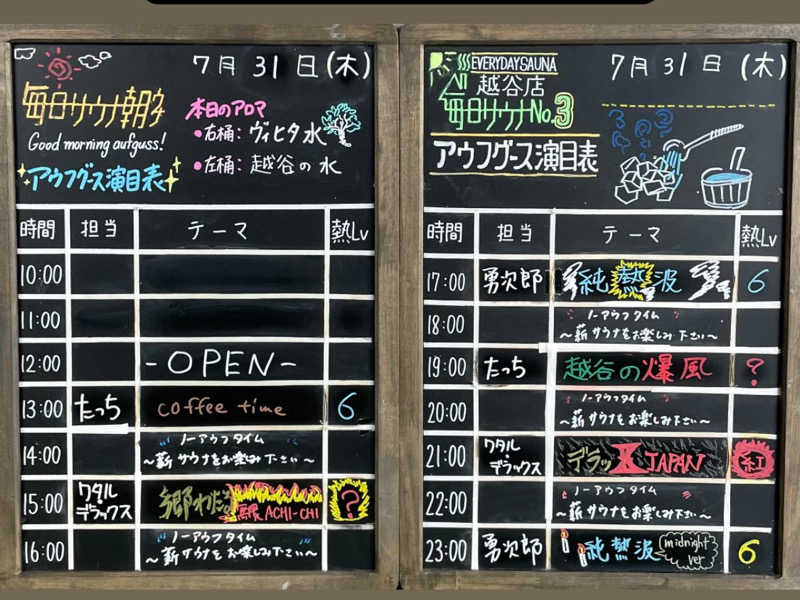 7月31日(木)
毎日サウナ朝活
Good morning aufguss!
アウフグース演目表
本日のアロマ
・右桶: ヴィヒタ水
・左桶: 越谷の水
時間 担当 テーマ 熱Lv
10:00
11:00
12:00 -OPEN-
13:00 たっち coffee time 6
14:00 ノーアウフタイム
～薪サウナをお楽み下さい～
15:00 ワタル
デラックス ACHI-CHI ?
16:00 ノーアウフタイム
～薪サウナをお楽しみ下さい～
EVERYDAYSAUNA
越谷店
毎日サウナNo.3
アウフグース演目表
7月31日(木)
時間 担当 テーマ 熱Lv
17:00 勇次郎 純熱波 6
18:00 ノーアウフタイム
～薪サウナをお楽しみ下さい～
19:00 たっち 越谷の爆風 ?
20:00 ノーアウフタイム
～薪サウナをお楽しみ下さい～
21:00 ワタル・
デラックス デラックスJAPAN 紅
22:00 ノーアウフタイム
～薪サウナをお楽しみ下さい～
23:00 勇次郎 純熱波 midnight
ver 6